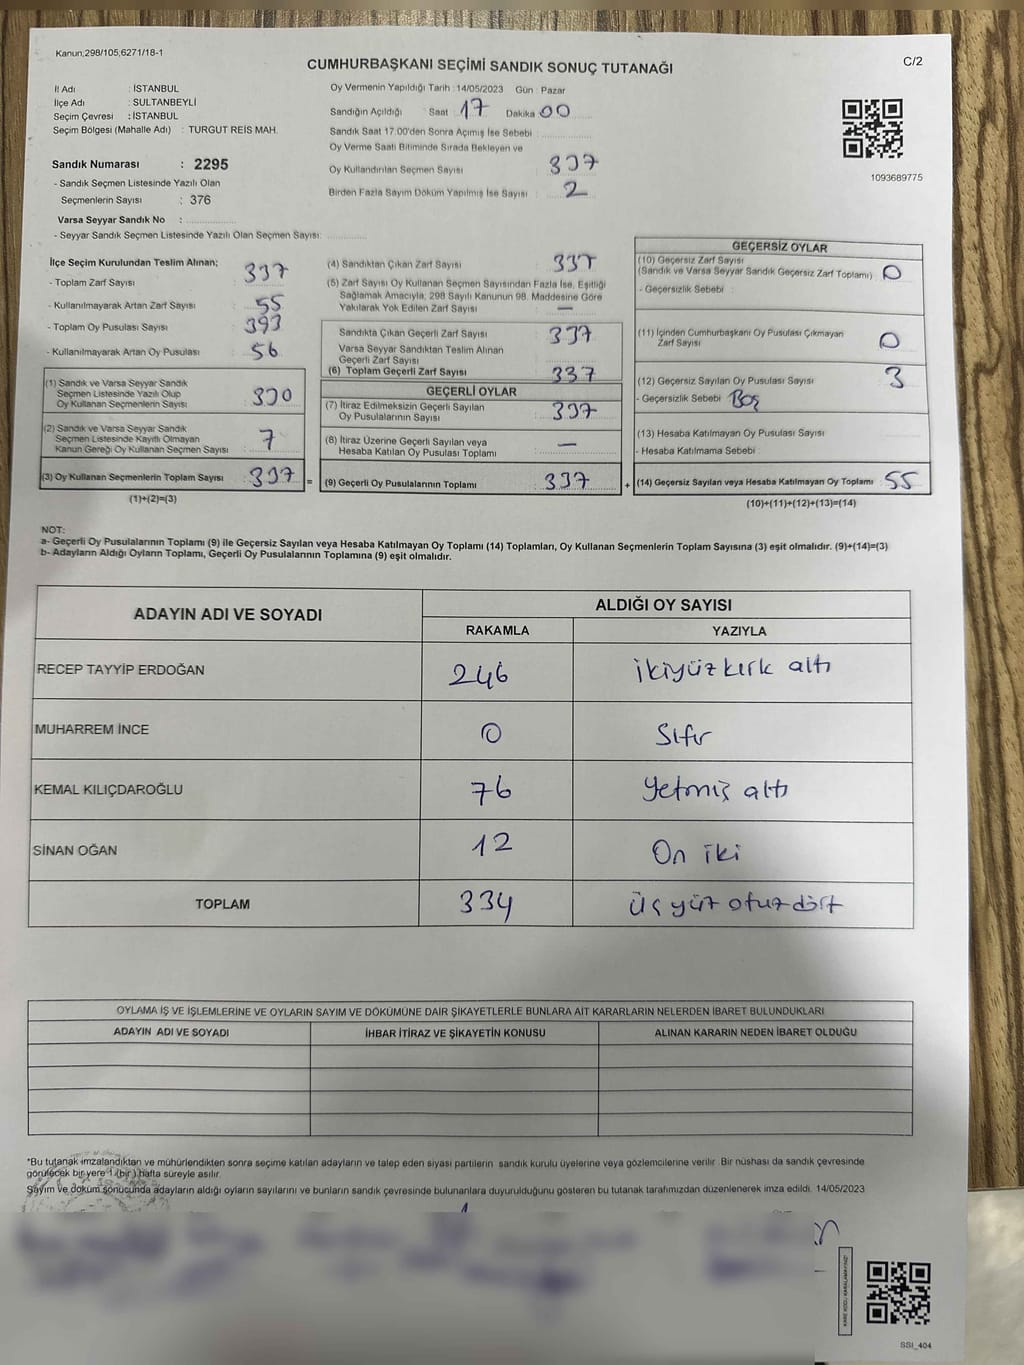 Kanun;298/105;6271/18-1
CUMHURBAŞKANI SEÇİMİ SANDIK SONUÇ TUTANAĞI
C/2
İl Adı : İSTANBUL
İlçe Adı : SULTANBEYLİ
Seçim Çevresi : İSTANBUL
Seçim Bölgesi (Mahalle Adı) : TURGUT REİS MAH.
Sandık Numarası : 2295
- Sandık Seçmen Listesinde Yazılı Olan
Seçmenlerin Sayısı : 376
Varsa Seyyar Sandık No :
- Seyyar Sandık Seçmen Listesinde Yazılı Olan Seçmen Sayısı:
Oy Vermenin Yapıldığı Tarih : 14/05/2023 Gün : Pazar
Sandığın Açıldığı Saat 17 Dakika 00
Sandık Saat 17.00'den Sonra Açımış İse Sebebi :
Oy Verme Saati Bitiminde Sırada Bekleyen ve
Oy Kullandırılan Seçmen Sayısı : 337
Birden Fazla Sayım Döküm Yapılmış İse Sayısı : 2
1093689775
İlçe Seçim Kurulundan Teslim Alınan;
- Toplam Zarf Sayısı : 337
- Kullanılmayarak Artan Zarf Sayısı : 55
- Toplam Oy Pusulası Sayısı : 393
- Kullanılmayarak Artan Oy Pusulası : 56
(1) Sandık ve Varsa Seyyar Sandık
Seçmen Listesinde Yazılı Olup
Oy Kullanan Seçmenlerin Sayısı : 330
(2) Sandık ve Varsa Seyyar Sandık
Seçmen Listesinde Kayıtlı Olmayan
Kanun Gereği Oy Kullanan Seçmen Sayısı : 7
(3) Oy Kullanan Seçmenlerin Toplam Sayısı : 337 =
(1)+(2)=(3)
(4) Sandıktan Çıkan Zarf Sayısı : 337
(5) Zarf Sayısı Oy Kullanan Seçmen Sayısından Fazla İse, Eşitliği
Sağlamak Amacıyla, 298 Sayılı Kanunun 98. Maddesine Göre
Yakılarak Yok Edilen Zarf Sayısı : —
Sandıkta Çıkan Geçerli Zarf Sayısı : 337
Varsa Seyyar Sandıktan Teslim Alınan
Geçerli Zarf Sayısı :
(6) Toplam Geçerli Zarf Sayısı : 337
GEÇERLİ OYLAR
(7) İtiraz Edilmeksizin Geçerli Sayılan
Oy Pusulalarının Sayısı : 337
(8) İtiraz Üzerine Geçerli Sayılan veya
Hesaba Katılan Oy Pusulası Toplamı : —
(9) Geçerli Oy Pusulalarının Toplamı : 337 +
GEÇERSİZ OYLAR
(10) Geçersiz Zarf Sayısı
(Sandık ve Varsa Seyyar Sandık Geçersiz Zarf Toplamı) : 0
- Geçersizlik Sebebi :
(11) İçinden Cumhurbaşkanı Oy Pusulası Çıkmayan
Zarf Sayısı : 0
(12) Geçersiz Sayılan Oy Pusulası Sayısı : 3
- Geçersizlik Sebebi : Boş
(13) Hesaba Katılmayan Oy Pusulası Sayısı :
- Hesaba Katılmama Sebebi :
(14) Geçersiz Sayılan veya Hesaba Katılmayan Oy Toplamı : 55
(10)+(11)+(12)+(13)=(14)
NOT:
a- Geçerli Oy Pusulalarının Toplamı (9) ile Geçersiz Sayılan veya Hesaba Katılmayan Oy Toplamı (14) Toplamları, Oy Kullanan Seçmenlerin Toplam Sayısına (3) eşit olmalıdır. (9)+(14)=(3)
b- Adayların Aldığı Oyların Toplamı, Geçerli Oy Pusulalarının Toplamına (9) eşit olmalıdır.
ADAYIN ADI VE SOYADI ALDIĞI OY SAYISI
RAKAMLA YAZIYLA
RECEP TAYYİP ERDOĞAN 246 ikiyüz kırk altı
MUHARREM İNCE 0 Sıfır
KEMAL KILIÇDAROĞLU 76 Yetmiş altı
SİNAN OĞAN 12 On iki
TOPLAM 334 Üç yüz otuz dört
OYLAMA İŞ VE İŞLEMLERİNE VE OYLARIN SAYIM VE DÖKÜMÜNE DAİR ŞİKAYETLERLE BUNLARA AİT KARARLARIN NELERDEN İBARET BULUNDUKLARI
ADAYIN ADI VE SOYADI İHBAR İTİRAZ VE ŞİKAYETİN KONUSU ALINAN KARARIN NEDEN İBARET OLDUĞU
*Bu tutanak imzalandıktan ve mühürlendikten sonra seçime katılan adayların ve talep eden siyasi partilerin sandık kurulu üyelerine veya gözlemcilerine verilir. Bir nüshası da sandık çevresinde
görülecek bir yere 1 (bir ) hafta süreyle asılır.
Sayım ve döküm sonucunda adayların aldığı oyların sayılarını ve bunların sandık çevresinde bulunanlara duyurulduğunu gösteren bu tutanak tarafımızdan düzenlenerek imza edildi. 14/05/2023
SSI_404